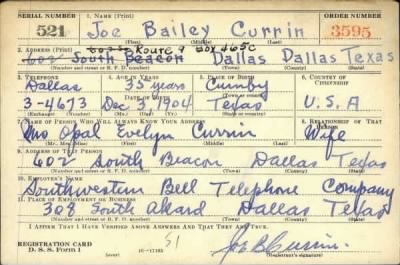 SERIAL NUMBER 1. NAME (Print) ORDER NUMBER
521 Joe Bailey Currin 3595
(First) (Middle) (Last)
2. ADDRESS (Print) Route 9 Box 465C
602 South Beacon Dallas Dallas Texas
(Number and street or R. F. D. number) (Town) (County) (State)
3. TELEPHONE 4. AGE IN YEARS 5. PLACE OF BIRTH 6. COUNTRY OF CITIZENSHIP
Dallas 35 years Cumby
DATE OF BIRTH
3-4673 Dec 3 1904 Texas U.S.A
(Exchange) (Number) (Mo.) (Day) (Yr.) (State or country)
7. NAME OF PERSON WHO WILL ALWAYS KNOW YOUR ADDRESS 8. RELATIONSHIP OF THAT PERSON
Mrs Opal Evelyn Currin Wife
(Mr., Mrs., Miss) (First) (Middle) (Last)
9. ADDRESS OF THAT PERSON
602 South Beacon Dallas Texas
(Number and street or R. F. D. number) (Town) (County) (State)
10. EMPLOYER'S NAME
Southwestern Bell Telephone Company
11. PLACE OF EMPLOYMENT OR BUSINESS
308 South Akard Dallas Texas
(Number and street or R. F. D. number) (Town) (County) (State)
I AFFIRM THAT I HAVE VERIFIED ABOVE ANSWERS AND THAT THEY ARE TRUE.
REGISTRATION CARD
D. S. S. Form 1 51 Joe B. Currin
(Registrant's signature)